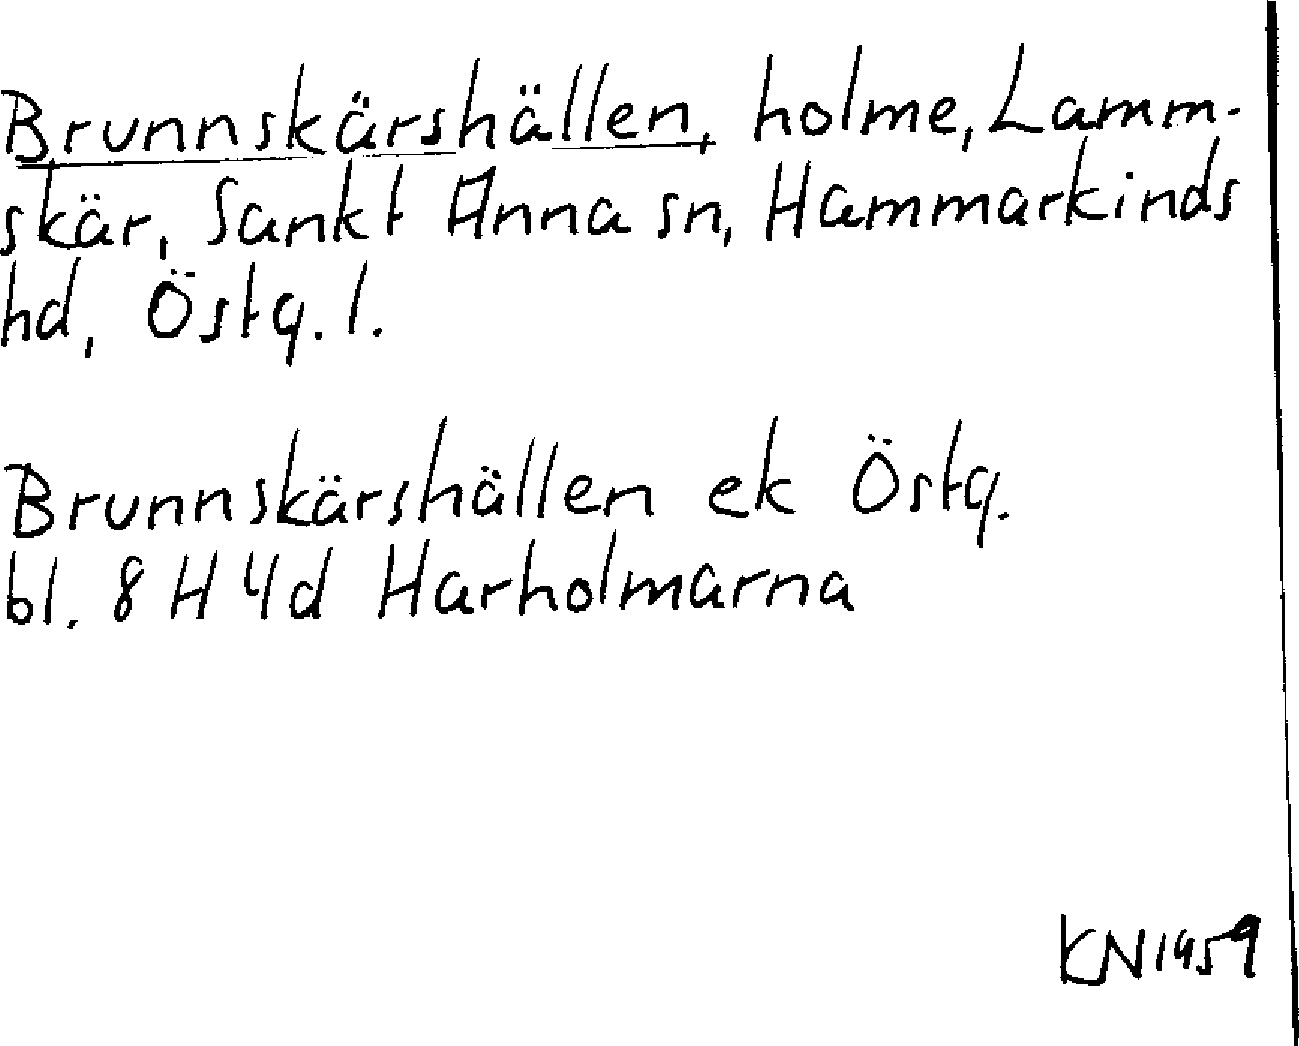 Brunnskärshällen, holme, Lamm-
skär, Sankt Anna sn, Hammarkinds
hd, Östg. l.
Brunnskärshällen ek Östg.
bl. 8 H 4d Harholmarna
KN 1959